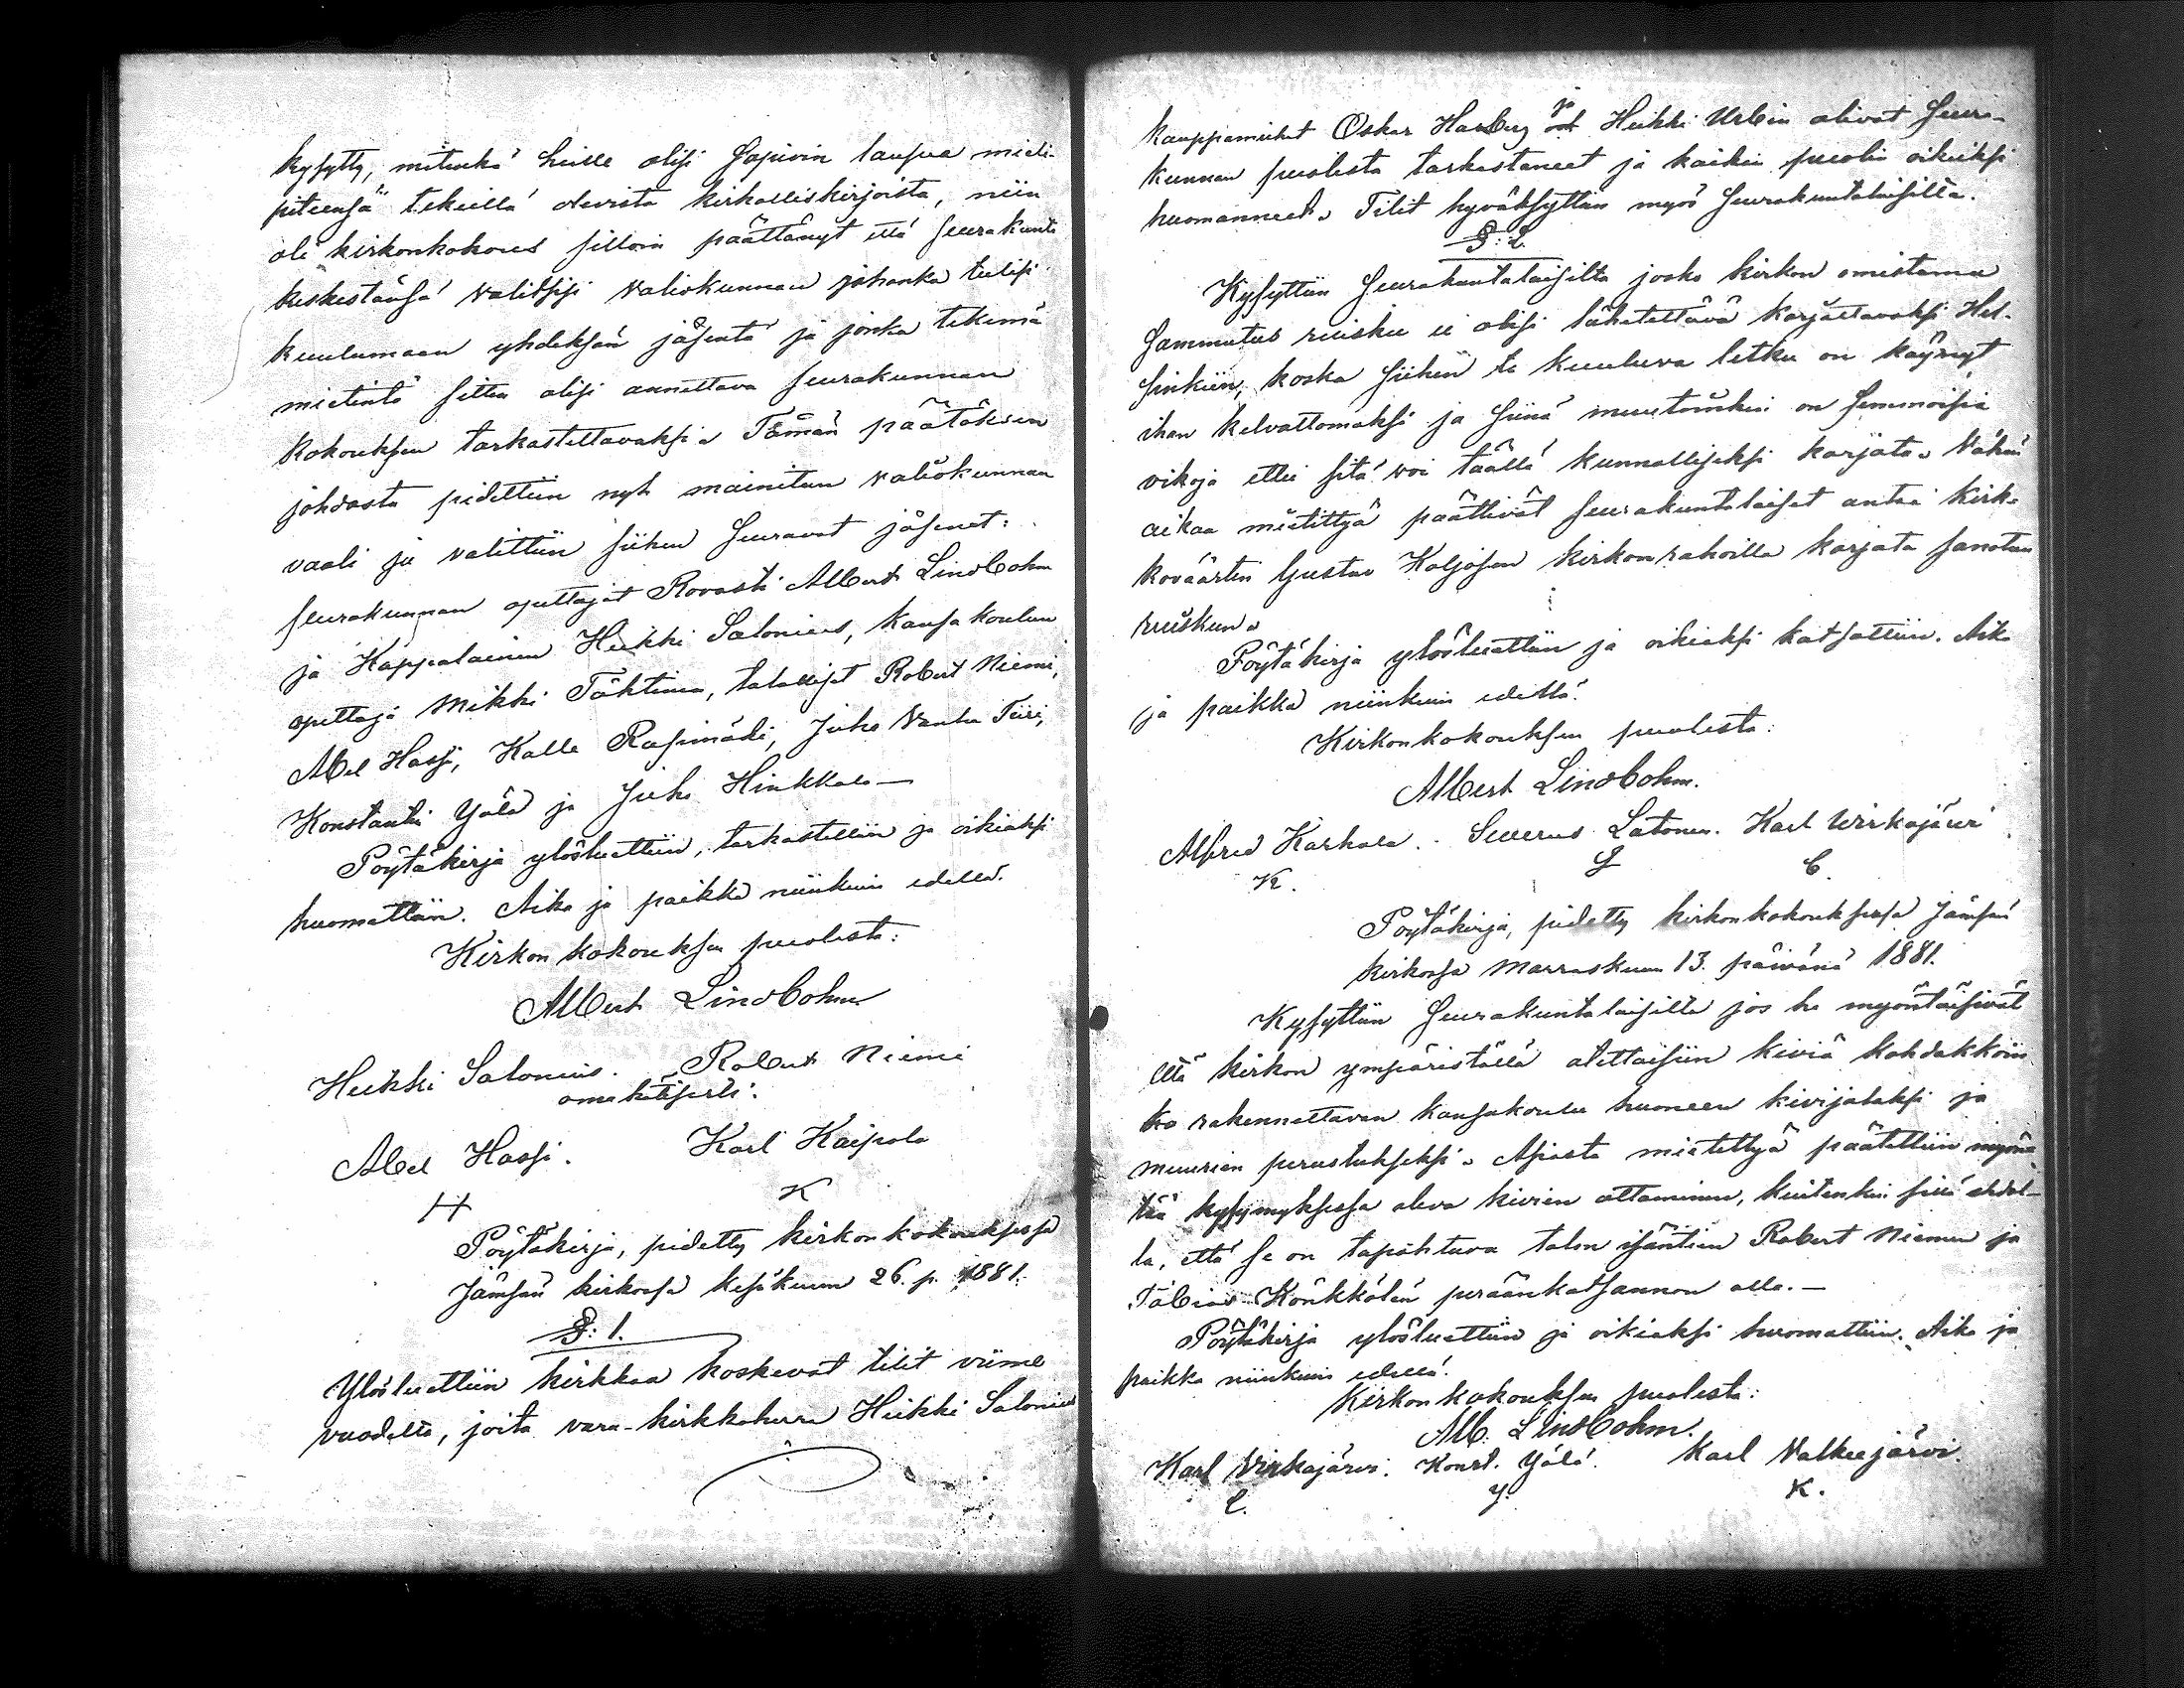 kysytty, mitenkä heille olisi sopivin lausua mieli-
piteensä tekeillä olevista kirkolliskirjoista, niin
oli kirkonkokous silloin päättänyt että seurakunta
keskestänsä valitsisi valiokunnan johonka tulisi
kuulumaan yhdeksän jäsentä ja jonka tekemä
mietintö sitten olisi annettava seurakunnan
kokouksen tarkastettavaksi. Tämän päätöksen
johdosta pidettiin nyt mainitun valiokunnan
vaali ja valittiin siihen seuraavat jäsenet:
seurakunnan opettajat Rovasti Albert Lindbohm
ja Kappalainen Heikki Salonius, kansakoulun
opettaja Mikki Tähtinen, talolliset Robert Niemi,
Abel Hassi, Kalle Rasinmäki, Juho Vanha Tiiri,
Konstantin Ylä ja Juho Hinkkala —
Pöytäkirja ylösluettiin, tarkastettiin ja oikiaksi
huomattiin. Aika ja paikka niinkuin edellä.
Kirkon kokouksen puolesta:
Albert Lindbohm
Heikki Salonius. Robert Niemi
omakätisesti:
Abel Hassi. Karl Kaipola
H K
Pöytäkirja, pidetty kirkonkokouksessa
Jämsän kirkossa kesäkuun 26. p. 1881.
§: 1.
Ylösluettiin kirkkoa koskevat tilit viime
vuodelta, joita vara-kirkkoherra Heikki Salonius
kauppamiehet Oskar Harberg ja Heikki Urbin olivat seura-
kunnan puolesta tarkastaneet ja kaikin puolin oikeiksi
huomanneet. Tilit hyväksyttiin myös seurakuntalaisilta.
§: 2.
Kysyttiin seurakuntalaisilta josko kirkon omistama
sammutus ruisku ei olisi lähetettävä korjattavaksi Hel-
sinkiin, koska siihen kuuluva letku on käynyt
ihan kelvottomaksi ja siinä muutoinkin on semmoisia
vikoja ettei sitä voi täällä kunnolliseksi korjata. Vähän
aikaa mietittyä päättivät seurakuntalaiset antaa kirk-
koväärtin Gustav Koljosen kirkon rahoilla korjata sanotun
ruiskun.
Pöytäkirja ylösluettiin ja oikiaksi katsottiin. Aika
ja paikka niinkuin edellä.
Kirkonkokouksen puolesta:
Albert Lindbohm.
Alfred Karhala. Severus Latonen. Karl Virkajärvi
K. L C.
Pöytäkirja, pidetty kirkonkokouksessa Jämsän
kirkossa Marraskuun 13. päivänä 1881.
Kysyttiin seurakuntalaisilta jos he myöntäisivät
että kirkon ympäristöllä otettaisiin kiviä kohdakkoin
ko rakennettavan kansakoulu huoneen kivijalaksi ja
muurien perustukseksi. Asiasta mietittyä päätettiin myön-
tää kysymyksessä oleva kivien ottaminen, kuitenkin sillä ehdol-
la, että se on tapahtuva talon isäntien Robert Niemen ja
Tobias Könkkölän peräänkatsannon alla. —
Pöytäkirja ylösluettiin ja oikiaksi huomattiin. Aika ja
paikka niinkuin edellä.
Kirkonkokouksen puolesta:
Alb. Lindbohm.
Karl Virkajärvi. Konst. Ylä. Karl Valkeejärvi.
C. Y. K.